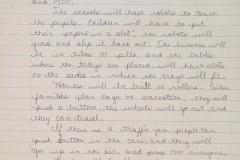 and 1900.
The schools will have robots to teach
the pupils. Children will have to put
their papers in a slot; the robots will
grade and slip it back out. The lunches will
be in tubes or pills, and the tables
where the trays are placed, will have slots
on the sides in which the trays will fit.
Houses will be built on rollers. When
families plan to go on vacation, they will
push a button, the whole will go out, and
they can travel.
If there is a traffic jam, people can
push button in the cars, and they will
go up in the air, and pass over everyone.